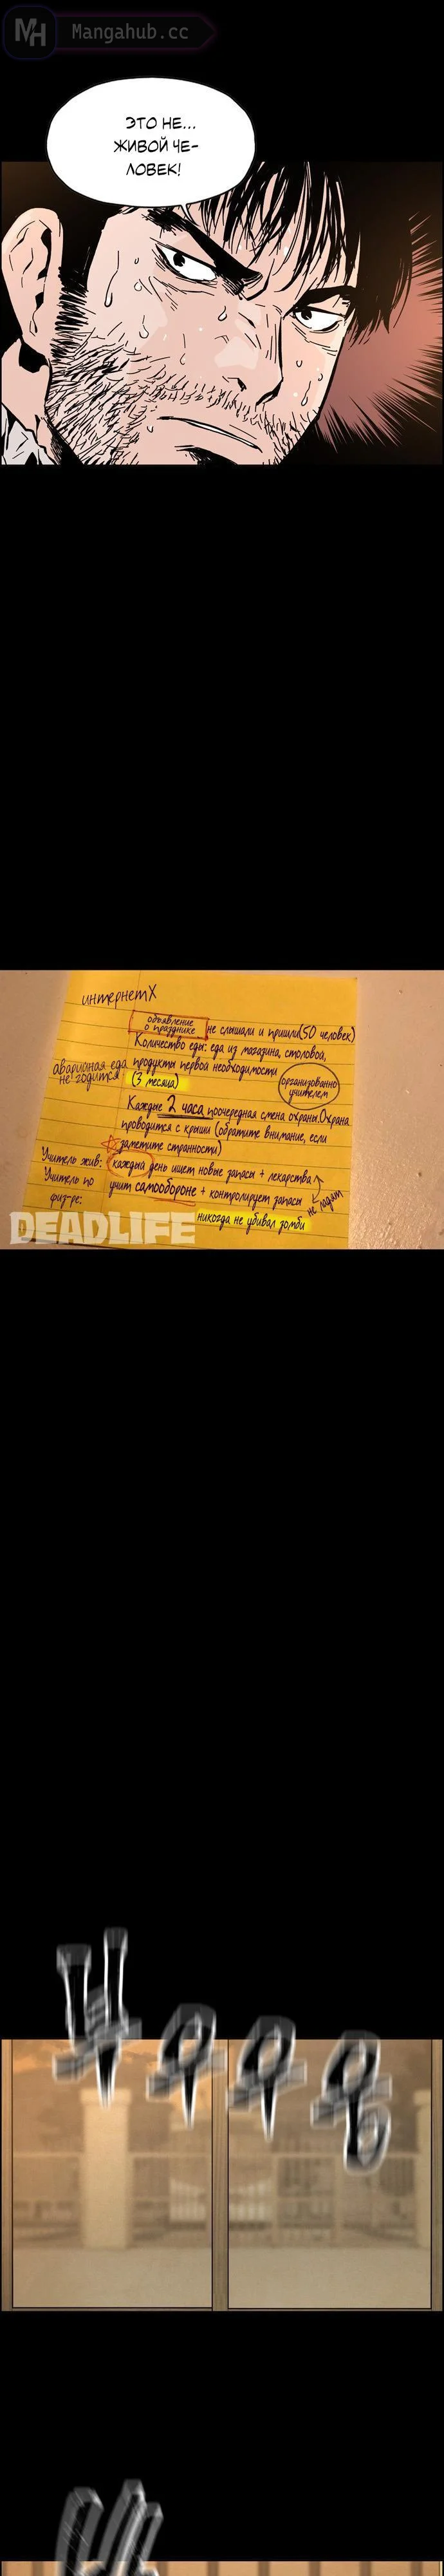 MH Mangahub.cc
ЭТО НЕ...
ЖИВОЙ ЧЕ-
ЛОВЕК!
интернетX
объявление
о празднике
не слышали и пришли(50 человек)
Количество еды: еда из магазина, столовой,
аварийная еда
не годится
продукты первой необходимости
(3 месяца)
организованно
учителем
Каждые 2 часа поочередная смена охраны.Охрана
проводится с крыши (обратите внимание, если
заметите странности)
Учитель жив: каждый день ищет новые запасы + лекарства
Учитель по
физ-ре:
учит самообороне + контролирует запасы
не ладят
никогда не убивал зомби
DEADLIFE
부우우웅